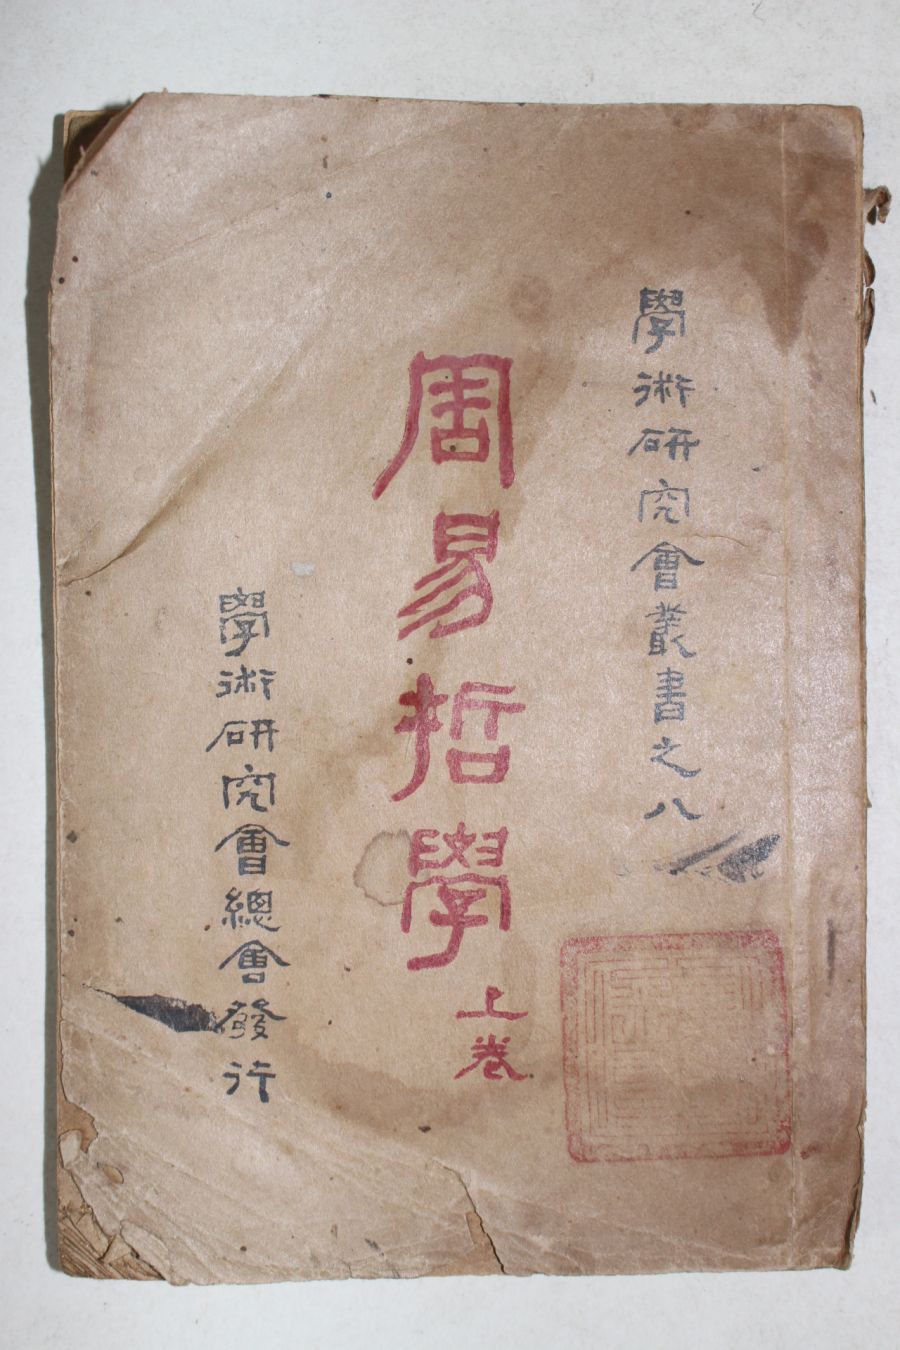 學術研究會叢書之八
周易哲學
上卷
學術研究會總會發行